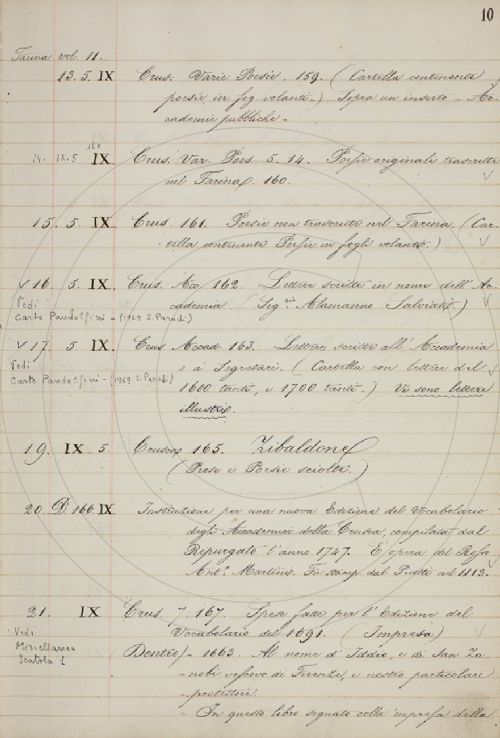 10
Farina vol. 11.
13. 5. IX Crus. Varie Poesie. 159. (Cartella contenente
poesie in fog. volanti.) Sopra un inserto - Ac-
cademie pubbliche.
160
14. IX. 5 IX. Crus. Var. Poes. 5. 14. Poesie originali trascritte
nel Farina, 160.
15. 5 IX. Crus. 161. Poesie non trascritte nel Farina. (Car-
tella contenente Poesie in fogli volanti.)
√ 16. 5 IX. Crus. Acc. 162. Lettere scritte in nome dell' Ac-
Vedi cademia (Seg.rio Alamanno Salviati.)
Carte Pandolfini - (1969 S. Parodi)
√ 17. 5 IX Crus. Accad. 163. Lettere scritte all' Accademia
Vedi e a' Segretari. (Cartella con lettere del
Carte Pandolfini - (1969 S. Parodi) 1600 tante, e 1700 tante.) Vi sono lettere
illustri.
19. IX. 5. Crusca, 165. Zibaldone
(Prose e Poesie sciolte.)
20. D. 166 IX Instruzione per una nuova Edizione del Vocabolario
degli Accademici della Crusca, compilata dal
Ripurgato l'anno 1747. È opera del Rosso
Ant.o Martini. Fu stamp. dal Piatti nel 1813.
21. IX Crus. 7. 167. Spese fatte per l' Edizione del
Vedi Vocabolario del 1691. (Impresa)
Miscellanea Dentro) - 1663. Al nome d' Iddio, e di San Za-
Scatola 1 nobi vescovo di Firenze, e nostro particolare
- protettore.
- In questo libro segnato colla impresa della